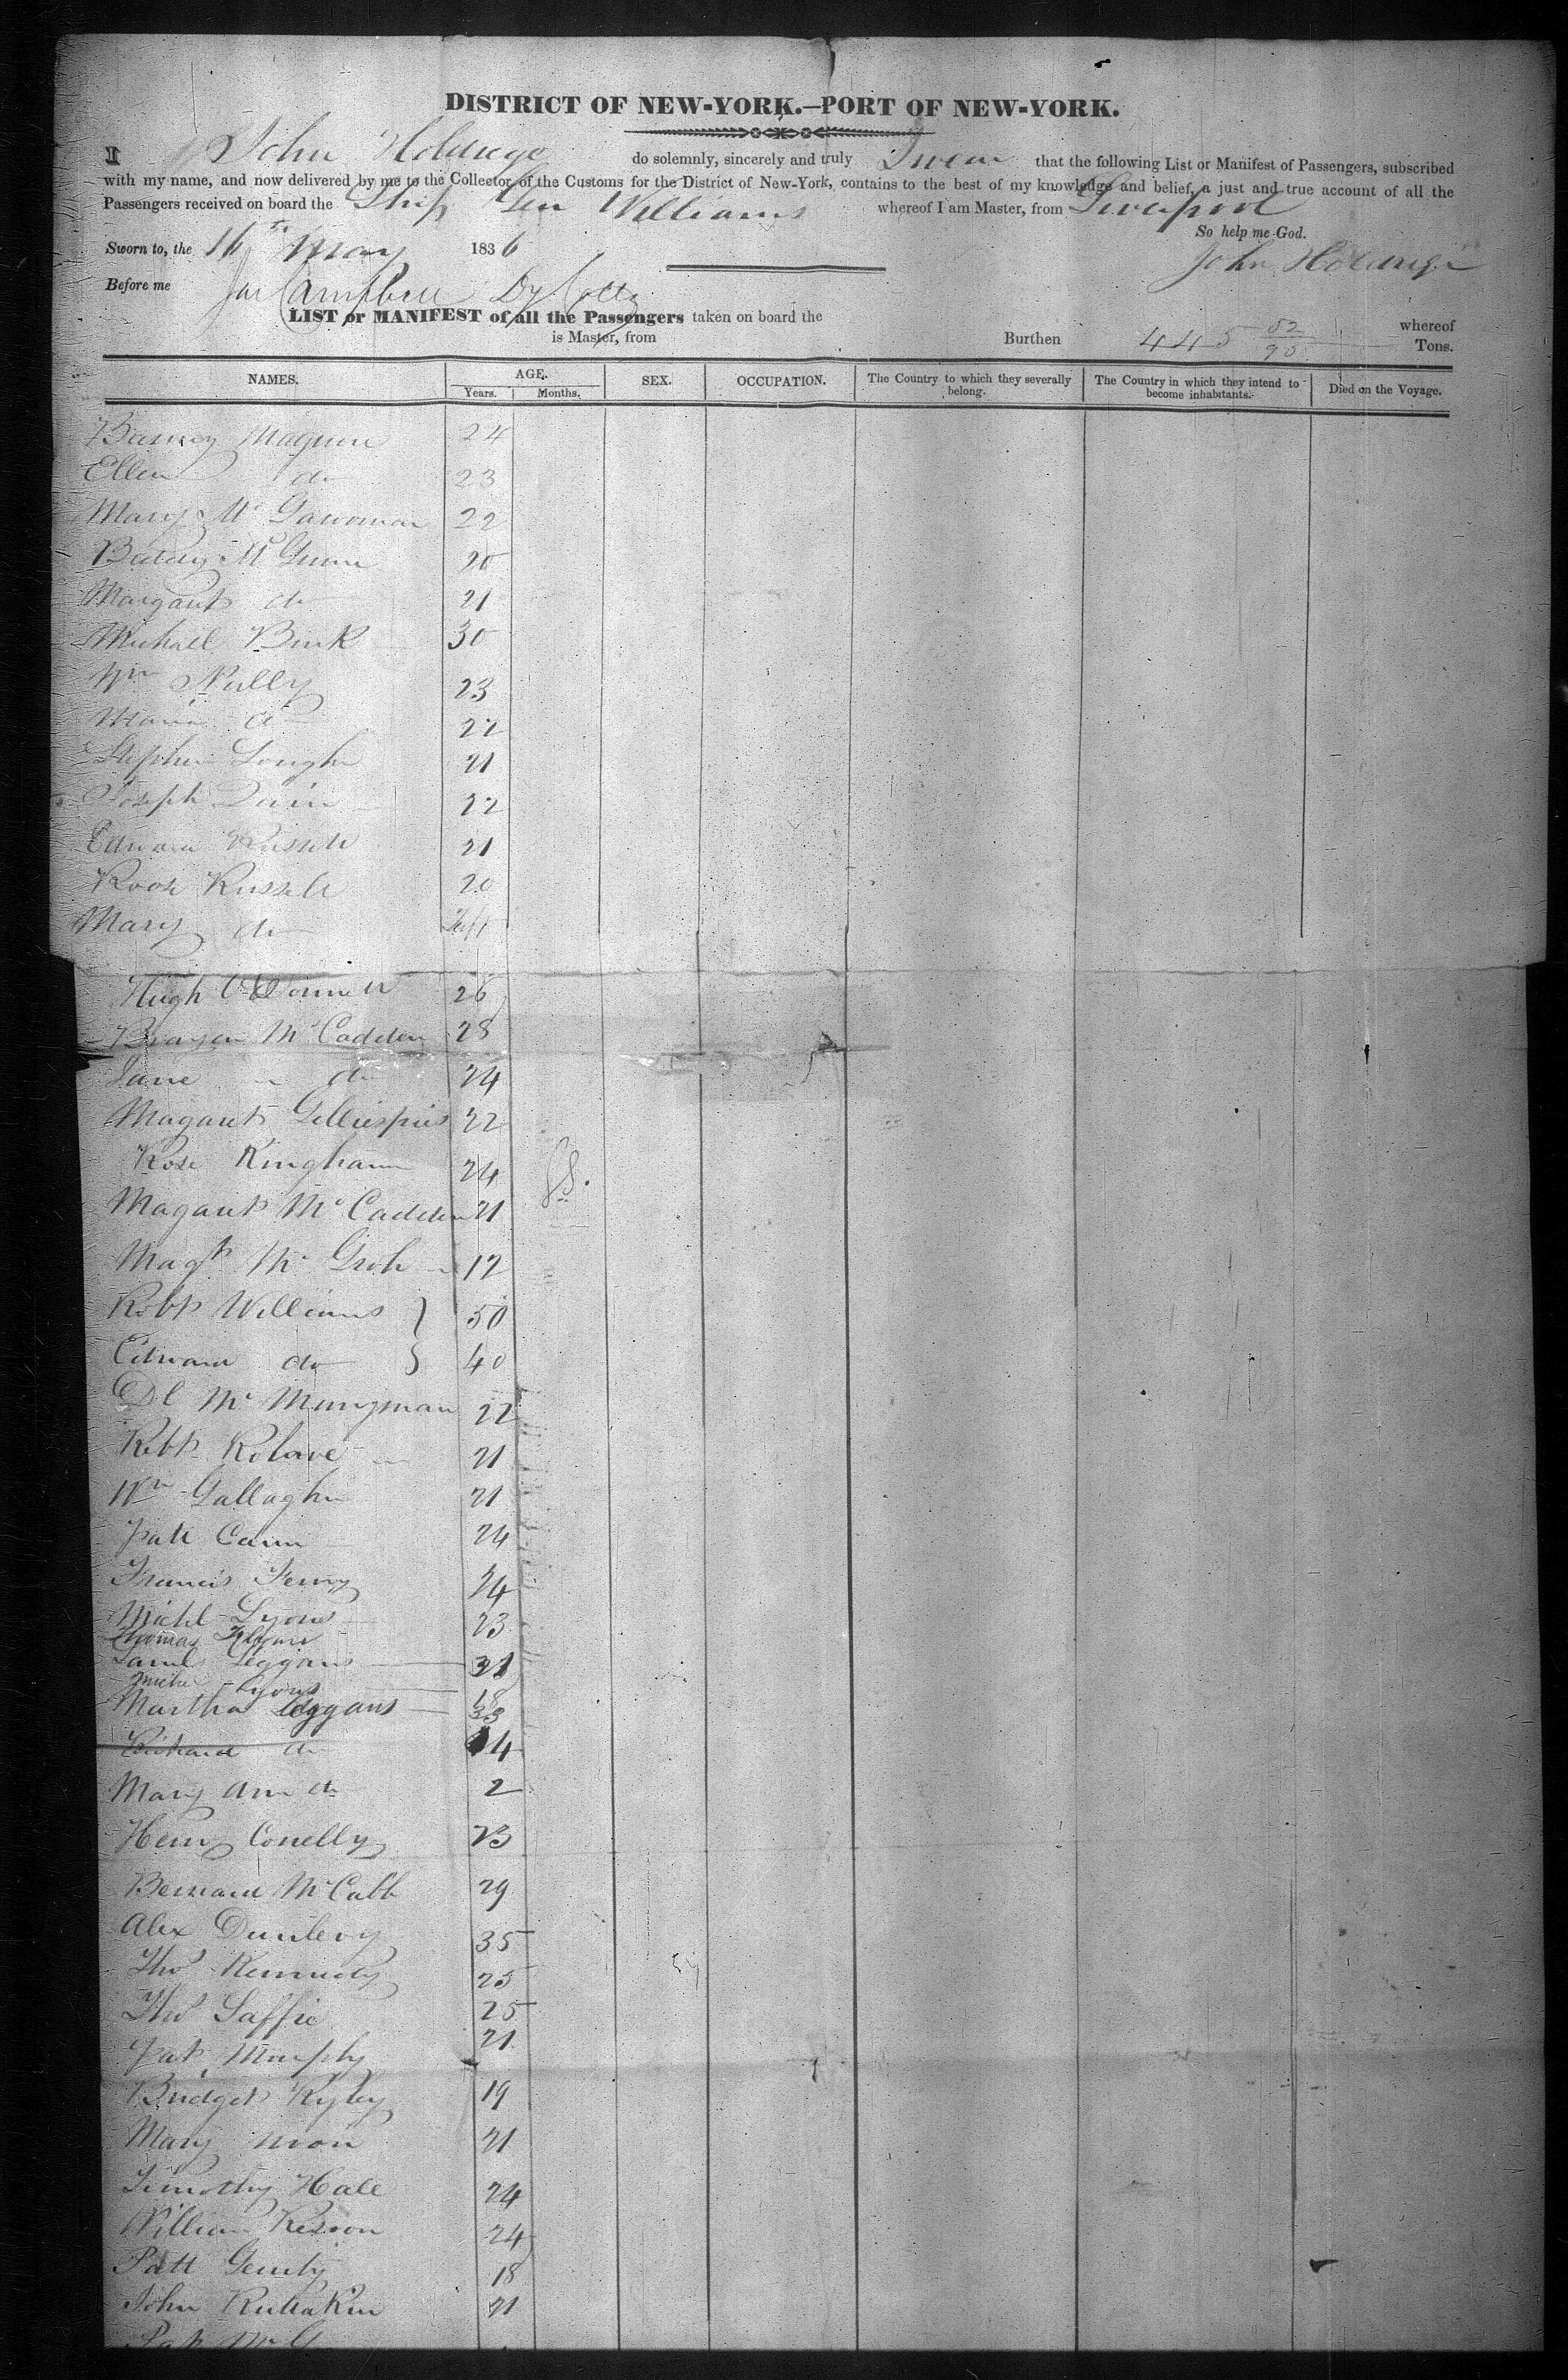 DISTRICT OF NEW-YORK.—PORT OF NEW-YORK.
I John Holdrege do solemnly, sincerely and truly Swear that the following List or Manifest of Passengers, subscribed
with my name, and now delivered by me to the Collector of the Customs for the District of New-York, contains to the best of my knowledge and belief, a just and true account of all the
Passengers received on board the Ship Gen Williams whereof I am Master, from Liverpool
So help me God.
Sworn to, the 16th May 1836
John Holdrege
Before me Jas Campbell Dy Coll
LIST or MANIFEST of all the Passengers taken on board the whereof
is Master, from Burthen 445 52/95 Tons.
NAMES. AGE. SEX. OCCUPATION. The Country to which they severally belong. The Country in which they intend to become inhabitants. Died on the Voyage.
Years. Months.
24
Ellen do 23
Mary Mc 22
Mc 20
Margaret do 21
Michael 30
Wm Nully 23
Maria do 22
Stephen 21
Joseph 22
Edward Russell 21
Rose Russell 20
Mary do
Hugh O'Donnell 26
Mc Cadden 28
Jane do 24
Magaret Gilliespie 22
Rose Kingham 24
Magaret Mc Cadden 21
Magt Mc 12
Robt Williams 50
Edward do 40
Mc 22
Robt 21
Wm Gallagher 21
Patt 24
Francis Ferry 24
Michl Lyons 23
Thomas
Saml Leggans 31
Lyons 18
Martha Leggans 33
do 4
Mary Ann do 2
Henry Conelly 23
Bernard McCabb 29
Alex Dunlevy 35
Thos Kennedy 25
Thos Laffie 25
Pat Murphy 21
Bridget Ryley 19
Mary 21
Timothy Hale 24
William 24
Patt Gerrity 18
John 21
Pat Mc